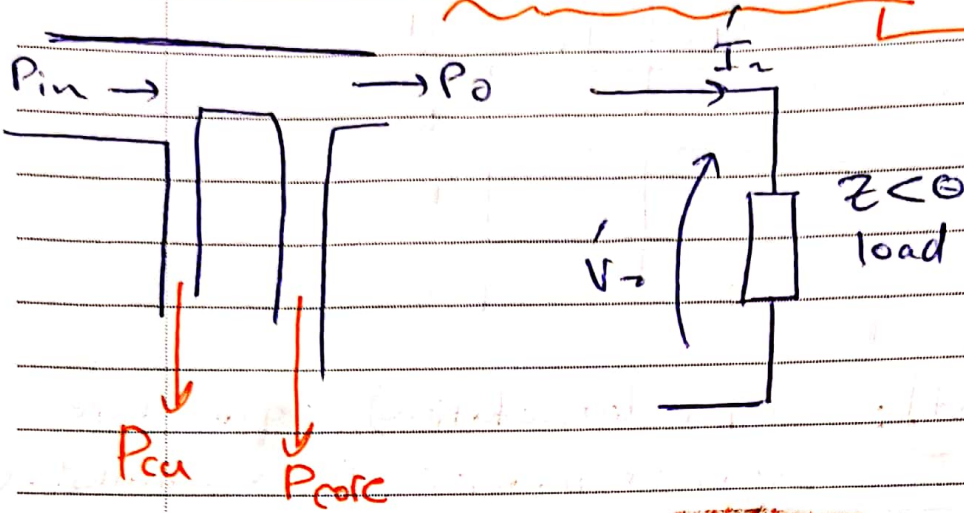 Pin → → Po
I₂
Z<θ
load
V́₂
Pcu
Pcore